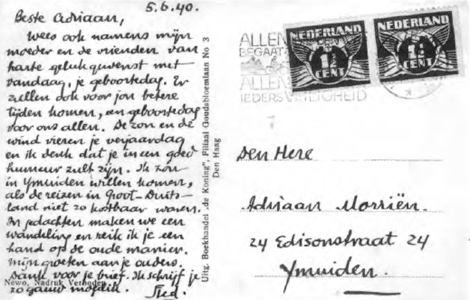 5.6.40.
Beste Adriaan,
Wees ook namens mijn
moeder en de vrienden van
harte gelukgewenst met
vandaag, je geboortedag. Er
zullen ook voor jou betere
tijden komen, een geboortedag
voor ons allen. De zon en de
wind vieren je verjaardag
en ik denk dat je in een goed
humeur zult zijn. Ik zou
in Ymuiden willen komen,
als de reizen in Groot-Duits-
land niet zo kostbaar waren.
In gedachten maken we een
wandeling en reik ik je een
hand op de oude manier.
Mijn groeten aan je ouders.
Dank voor je brief. Ik schrijf je
zo gauw mogelijk.
Newo, Nadruk Verboden
Uitg. Boekhandel „de Koning", Filiaal Goudsbloemlaan No 3
Den Haag
NEDERLAND
1½
CENT
NEDERLAND
1½
CENT
ALLEN
ALLEN
IEDERS VEILIGHEID
Den Here
Adriaan Morriën.
24 Edisonstraat 24
Ymuiden.